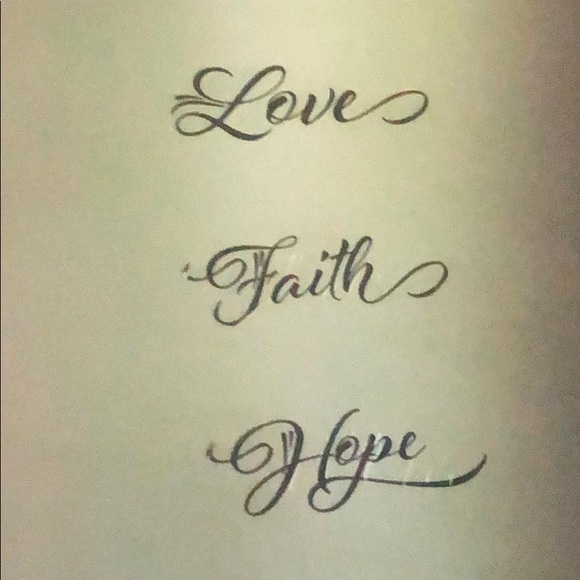 Love
Faith
Hope